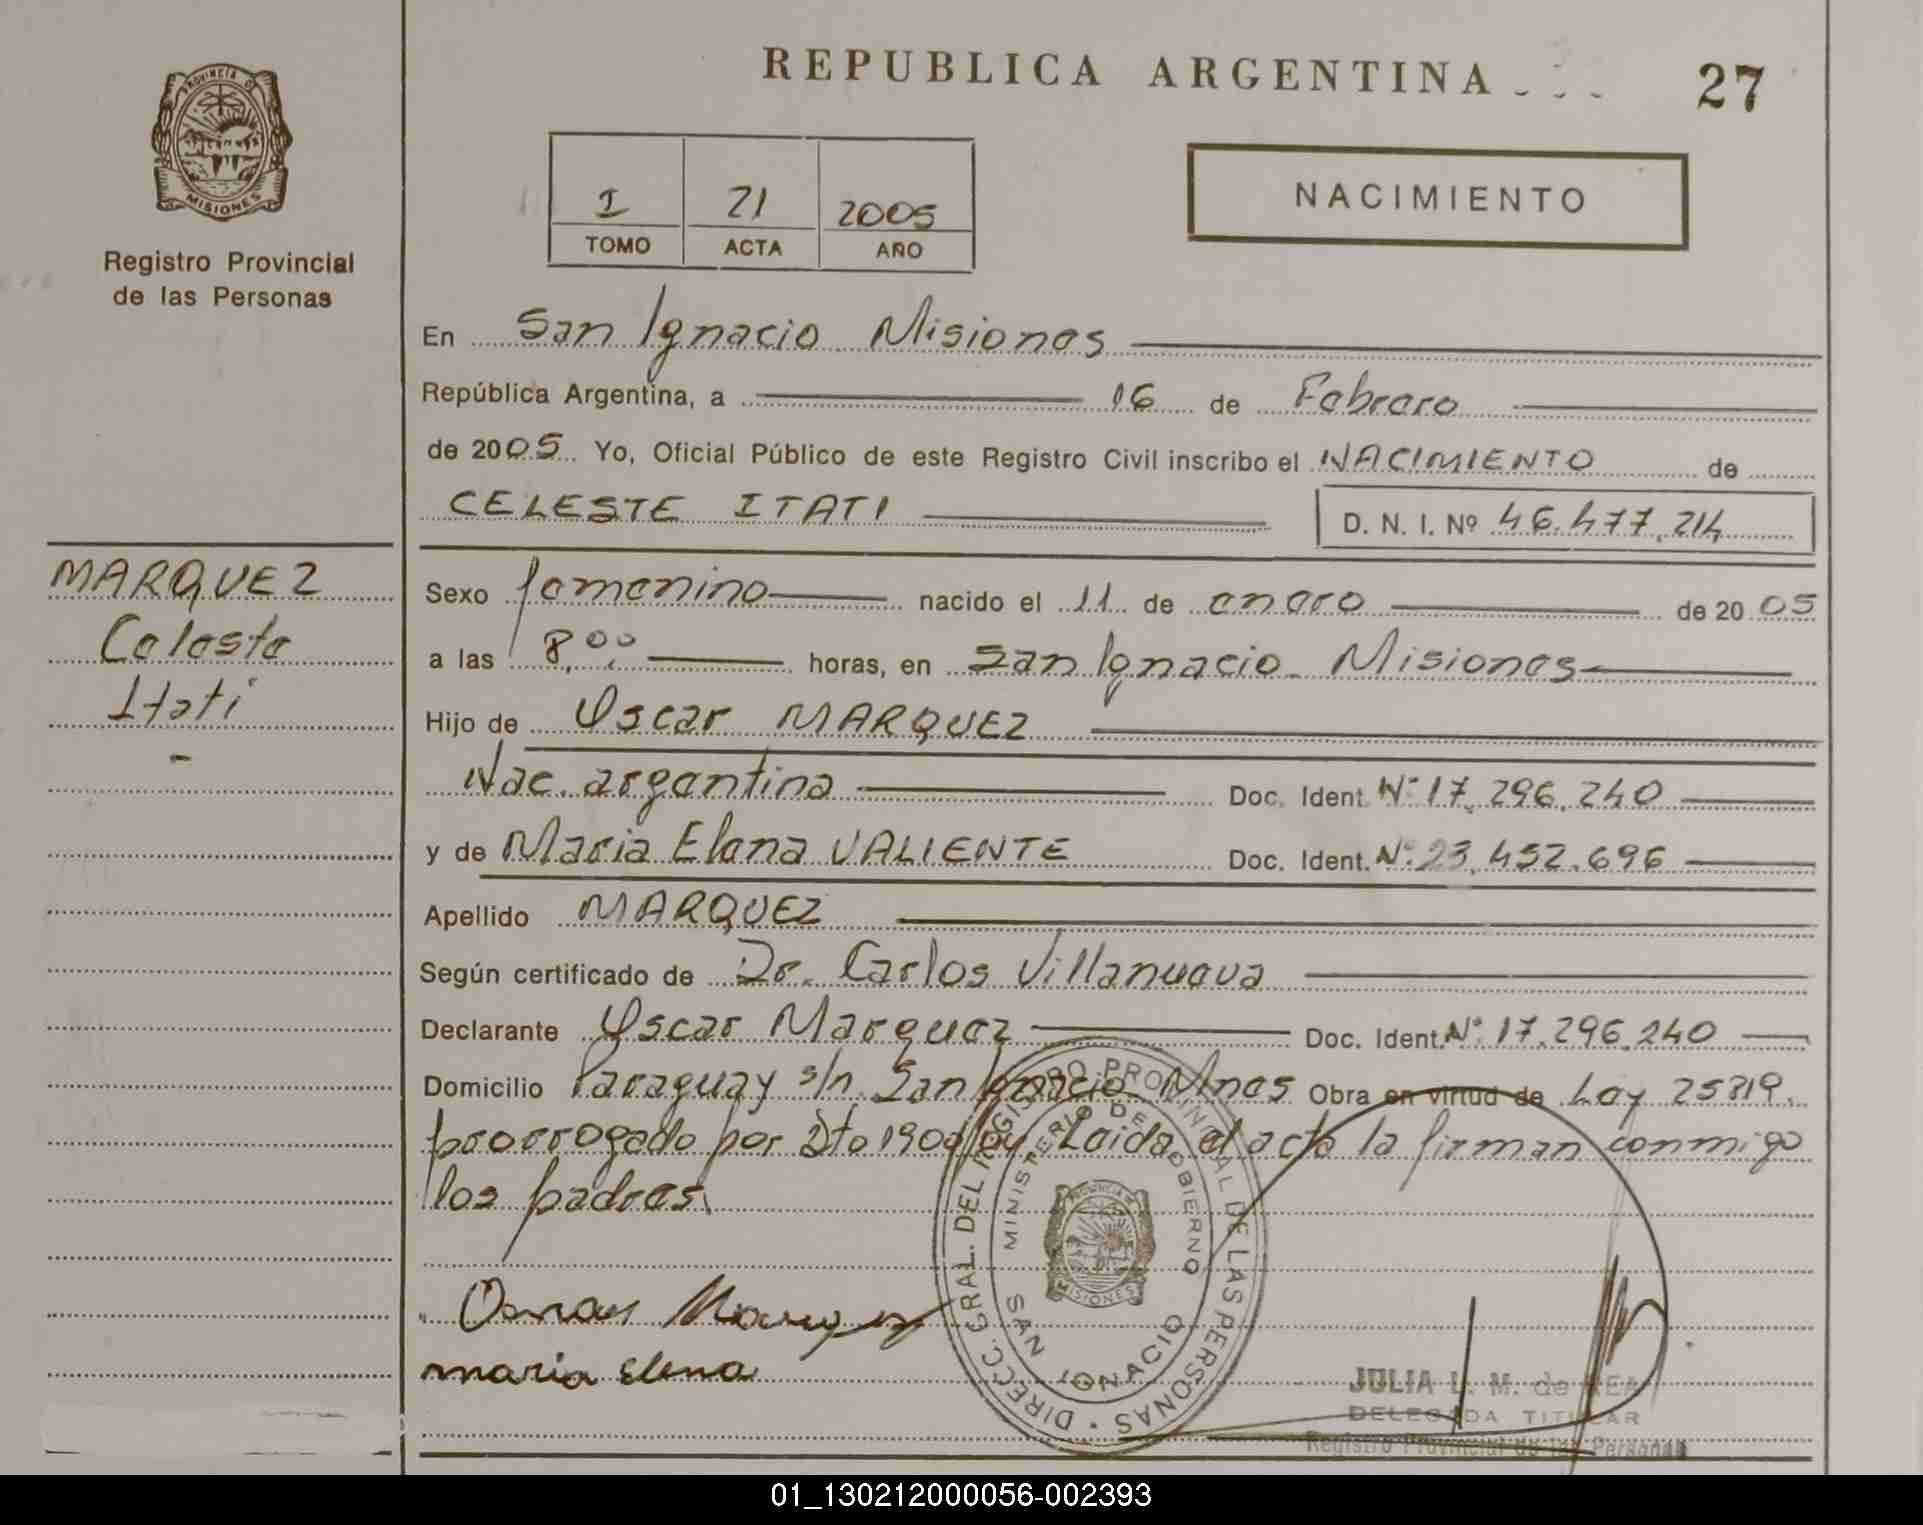 REPUBLICA ARGENTINA
27
PROVINCIA D
MISIONES
Registro Provincial
de las Personas
I 21 2005
TOMO ACTA AÑO
NACIMIENTO
En San Ignacio Misiones
República Argentina, a 16 de Febrero
de 2005 Yo, Oficial Público de este Registro Civil inscribo el NACIMIENTO de
CELESTE ITATI D. N. I. Nº 46.477.214
MARQUEZ
Celeste
Itati
-
Sexo femenino nacido el 11 de enero de 2005
a las 8,00 horas, en San Ignacio Misiones
Hijo de Oscar MARQUEZ
Nac. argentina Doc. Ident. Nº 17.296.240
y de Maria Elena VALIENTE Doc. Ident. Nº 23.452.696
Apellido MARQUEZ
Según certificado de Dr. Carlos Villanueva
Declarante Oscar Marquez Doc. Ident. Nº 17.296.240
Domicilio Paraguay s/n. San Ignacio Mnes Obra en virtud de Ley 25819.
prorrogado por Dto 190 Leida el acta la firman conmigo
los padres.
Marquez
maria Elena
DIRECC. GRAL. DEL REGISTRO PROVINCIAL DE LAS PERSONAS
MINISTERIO DE GOBIERNO
PROVINCIA
MISIONES
SAN IGNACIO
JULIA L. M. de REA
DELEGADA TITULAR
Registro Provincial de las Personas
01_130212000056-002393